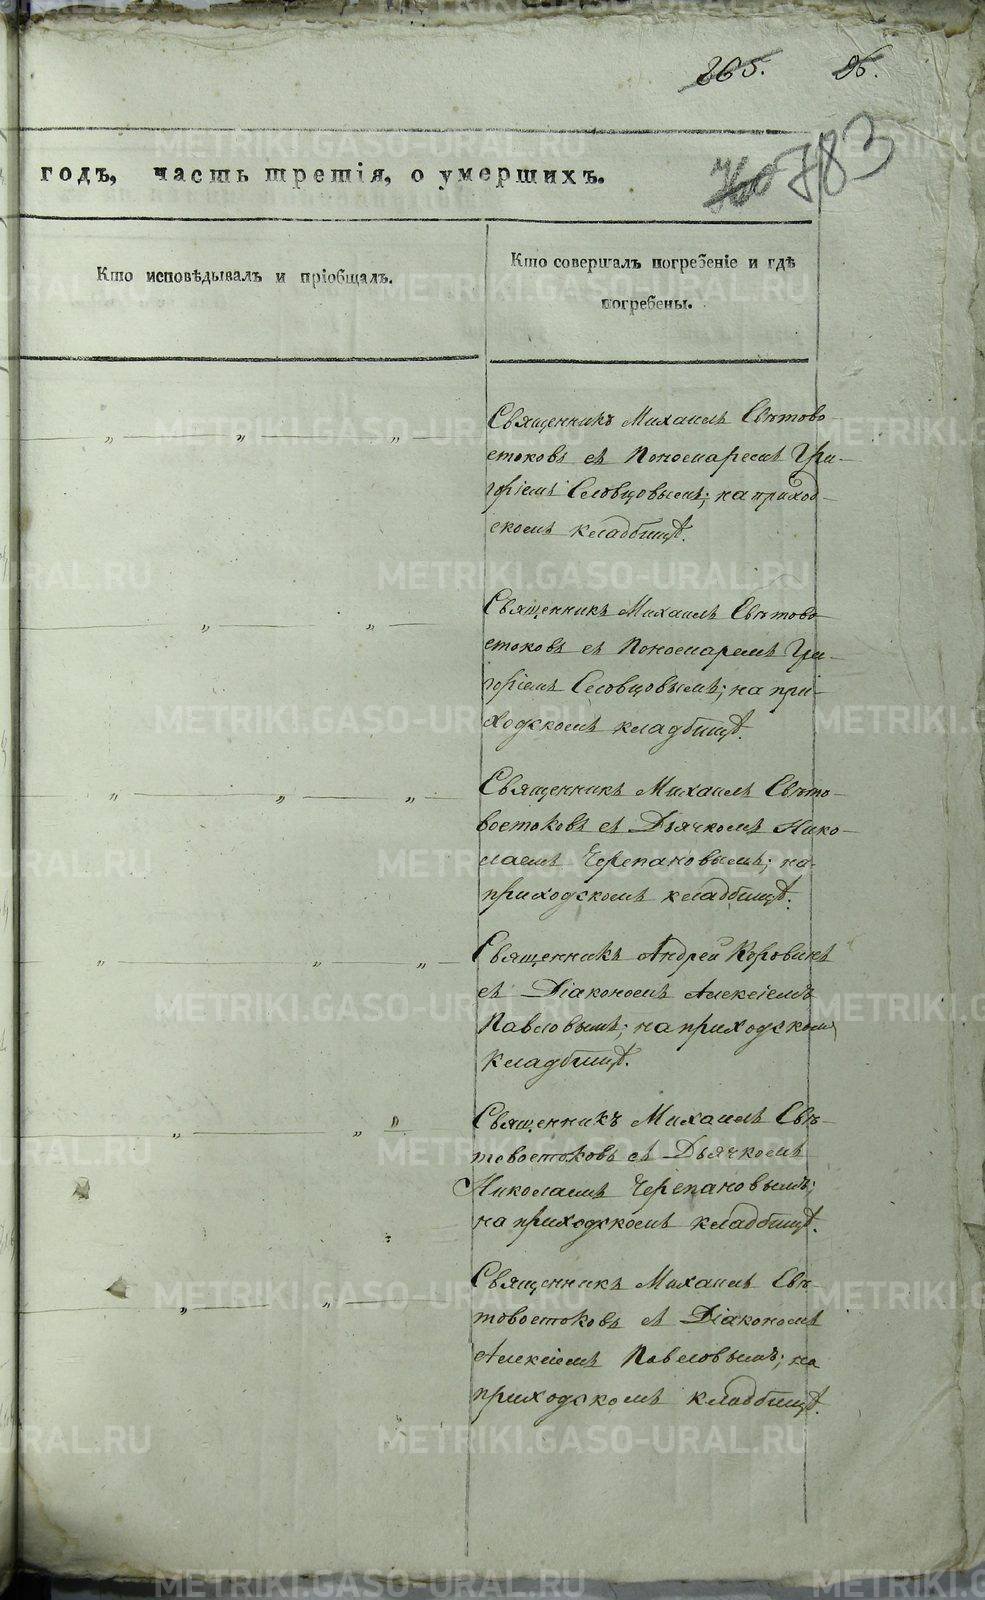 265. 96.
783
годъ, часть третія, о умершихъ.
Кто исповѣдывалъ и пріобщалъ.
Кто совершалъ погребеніе и гдѣ
погребены.
Священникъ Михаилъ Свѣтово-
стоковъ съ Пономаремъ Гри-
горіемъ Словцовымъ; на приход-
скомъ кладбищѣ.
Священникъ Михаилъ Свѣтово
стоковъ съ Пономаремъ Гри-
горіемъ Словцовымъ; на при-
ходскомъ кладбищѣ.
Священникъ Михаилъ Свѣто-
востоковъ съ Дьячкомъ Нико-
лаемъ Черепановымъ; на
приходскомъ кладбищѣ.
Священникъ Андрей Коровинъ
съ Діакономъ Алексіемъ
Павловымъ; на приходскомъ
кладбищѣ.
Священникъ Михаилъ Свѣ-
товостоковъ съ Дьячкомъ
Николаемъ Черепановымъ;
на приходскомъ кладбищѣ.
Священникъ Михаилъ Свѣ-
товостоковъ съ Діакономъ
Алексіемъ Павловымъ; на
приходскомъ кладбищѣ.
METRIKI.GASO-URAL.RU